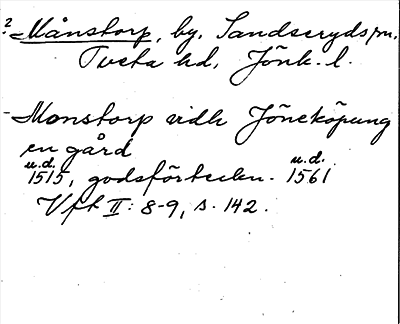 ? Månstorp, by, Sandseryds sn,
Tveta hd, Jönk. l.
- Monstorp vidh Jöneköpung
en gård
u.d. 1515, godsförteckn. u.d. 1561
Vft II: 8-9, s. 142.